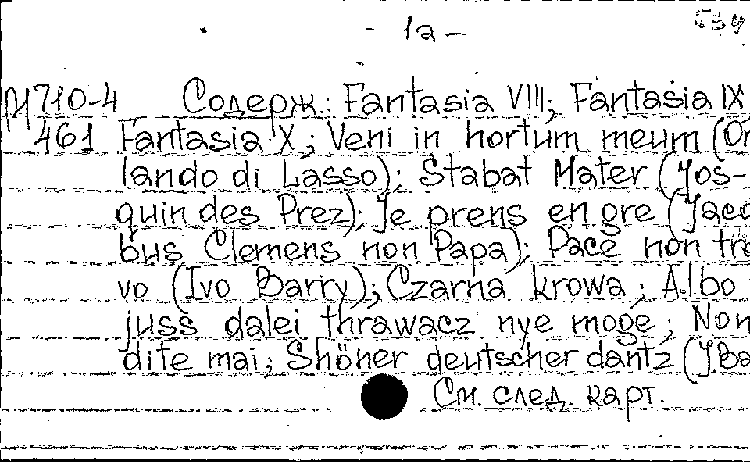 - 1а -
М710-4 Содерж.: Fantasia VIII; Fantasia IX
461 Fantasia X; Veni in hortum meum (Or
lando di Lasso); Stabat Mater (Jos-
quin des Prez); Je prens en gre (Jaco
bus Clemens non Papa); Pace non tro
vo (Ivo Barry); Czarna krowa; Albo
juss dalei thrawacz nye moge; Non
dite mai; Shöner deutscher dantz (J.Ba
См. след. карт.